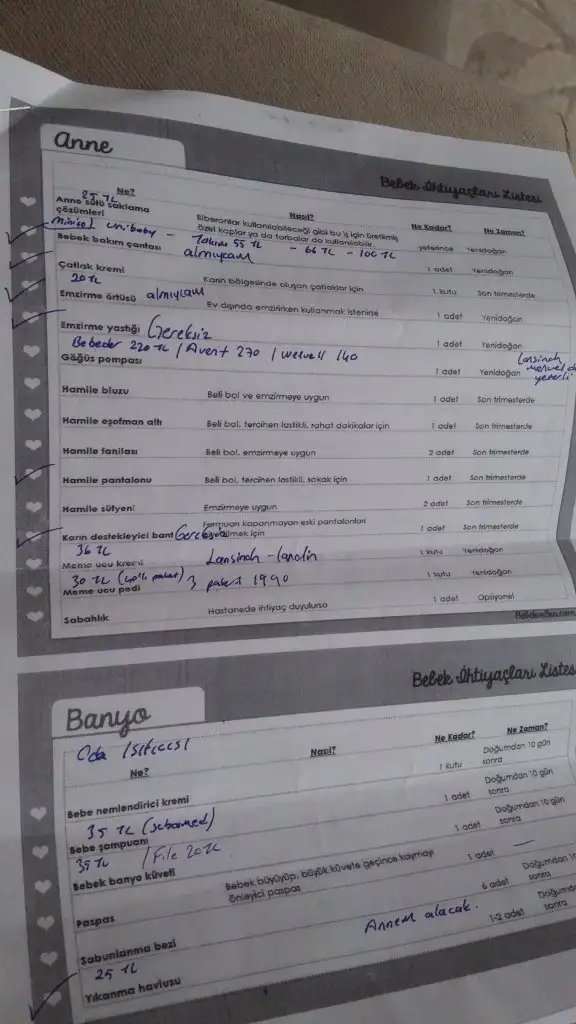 Anne
Bebek İhtiyaçları Listesi
Ne? Nasıl? Ne Kadar? Ne Zaman?
25 TL
Anne sütü saklama çözümleri Biberonlar kullanılabileceği gibi bu iş için üretilmiş özel kaplar ya da torbalar da kullanılabilir. yeterince Yenidoğan
uni baby - Takım 55 TL - 66 TL - 100 TL
Bebek bakım çantası almıycam 1 adet Yenidoğan
Çatlak kremi Karın bölgesinde oluşan çatlaklar için 1 kutu Son trimesterde
20 TL
Emzirme örtüsü almıycam Ev dışında emzirirken kullanmak istenirse 1 adet Yenidoğan
Emzirme yastığı Gereksiz 1 adet Yenidoğan
Bebedor 220 TL / Avent 270 / Weewell 140
Göğüs pompası 1 adet Yenidoğan Lansinoh manuel de yeterli
Hamile bluzu Beli bol ve emzirmeye uygun 1 adet Son trimesterde
Hamile eşofman altı Beli bol, tercihen lastikli, rahat dakikalar için 1 adet Son trimesterde
Hamile fanilası Beli bol, emzirmeye uygun 2 adet Son trimesterde
Hamile pantalonu Beli bol, tercihen lastikli, sokak için 1 adet Son trimesterde
Hamile sütyeni Emzirmeye uygun 2 adet Son trimesterde
Karın destekleyici bant Gereksiz Fermuarı kapanmayan eski pantalonları için 1 adet Son trimesterde
36 TL
Meme ucu kremi Lansinoh - lanolin 1 kutu Yenidoğan
30 TL (40'lı paket) 3 paket 19.90
Meme ucu pedi 1 kutu Yenidoğan
Sabahlık Hastanede ihtiyaç duyulursa 1 adet Opsiyonel
Bebek İhtiyaçları Listes
Banyo
Oda Isıtıcısı
Ne? Nasıl? Ne Kadar? Ne Zaman?
Bebe nemlendirici kremi 1 kutu Doğumdan 10 gün sonra
35 TL (Sebamed)
Bebe şampuanı 1 adet Doğumdan 10 gün sonra
39 TL / File 20 TL
Bebek banyo küveti 1 adet Doğumdan 10 gün sonra
Paspas Bebek büyüyüp, büyük küvete geçince kaymayı önleyici paspas 1 adet
Sabunlanma bezi 6 adet Doğumdan 10 sonra
25 TL Annem alacak.
Yıkanma havlusu 1-2 adet Doğumda sonra